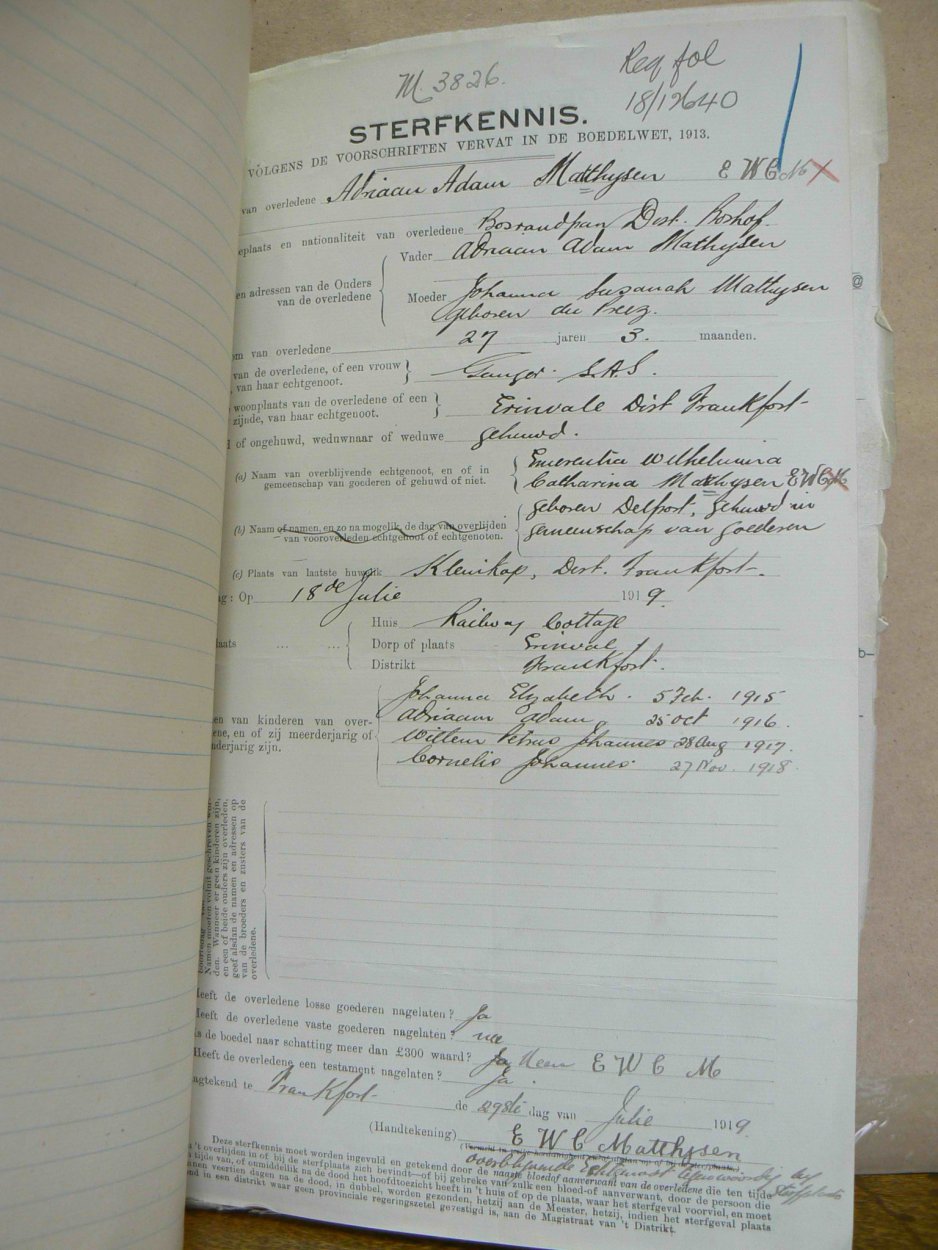 M. 3826.
Req fol
18/12640
STERFKENNIS.
VOLGENS DE VOORSCHRIFTEN VERVAT IN DE BOEDELWET, 1913.
van overledene Adriaan Adam Matthysen E W C M
plaats en nationaliteit van overledene Bosrandpan Dist. Boshof.
en adressen van de Ouders van de overledene
Vader Adriaan Adam Mathysen
Moeder Johanna Suzanah Matthysen
geboren du Preez.
om van overledene 27 jaren 3. maanden.
van de overledene, of een vrouw
van haar echtgenoot. Ganger S.A.S.
woonplaats van de overledene of een
zijnde, van haar echtgenoot. Erinvale Dist Frankfort
of ongehuwd, weduwnaar of weduwe gehuwd.
(a) Naam van overblijvende echtgenoot, en of in
gemeenschap van goederen of gehuwd of niet.
Emerentia Wilhelmina
Catharina Matthysen E W C M
geboren Delport, gehuwd in
gemeenschap van Goederen
(b) Naam of namen, en zo na mogelik, de dag van overlijden
van vooroverleden echtgenoot of echtgenoten.
(c) Plaats van laatste huwelik Klernkop, Dist. Frankfort.
: Op 18de Julie 1919.
aats ... ...
Huis Railway Cottage
Dorp of plaats Erinval
Distrikt Frankfort.
en van kinderen van over-
ene, en of zij meerderjarig of
nderjarig zijn.
Johanna Elizabeth. 5 Feb. 1915
Adriaam Adam, 25 oct 1916.
Willem Petrus Johannes 28 Aug 1917.
Cornelis Johannes. 27 Nov. 1918.
Namen moeten voluit geschreven wor-
den. Wanneer er geen kinderen zijn,
en een of beide ouders zijn overleden,
geef alsdan de namen en adressen op
van de broeders en zusters van de
overledene.
Heeft de overledene losse goederen nagelaten? Ja
Heeft de overledene vaste goederen nagelaten? nee
Is de boedel naar schatting meer dan £300 waard? Ja Neen E W C M
Heeft de overledene een testament nagelaten? Ja.
agtekend te Frankfort de 29ste dag van Julie 1919.
(Handtekening) E W C Matthysen
overblijvende Echtgenoot tegenwoordig by
Deze sterfkennis moet worden ingevuld en getekend door de naaste bloedof aanverwant van de overledene die ten tijde
't overlijden in of bij de sterfplaats zich bevindt—of bij gebreke van zulk een bloed-of aanverwant, door de persoon die
tijde van, of onmiddelik na de dood het hoofdtoezicht heeft in 't huis of op de plaats, waar het sterfgeval voorviel, en moet
nen veertien dagen na de dood, in dubbel, worden gezonden, hetzij aan de Meester, hetzij, indien het sterfgeval plaats
nd in een distrikt waar geen provinciale regeringszetel gevestigd is, aan de Magistraat van 't Distrikt.